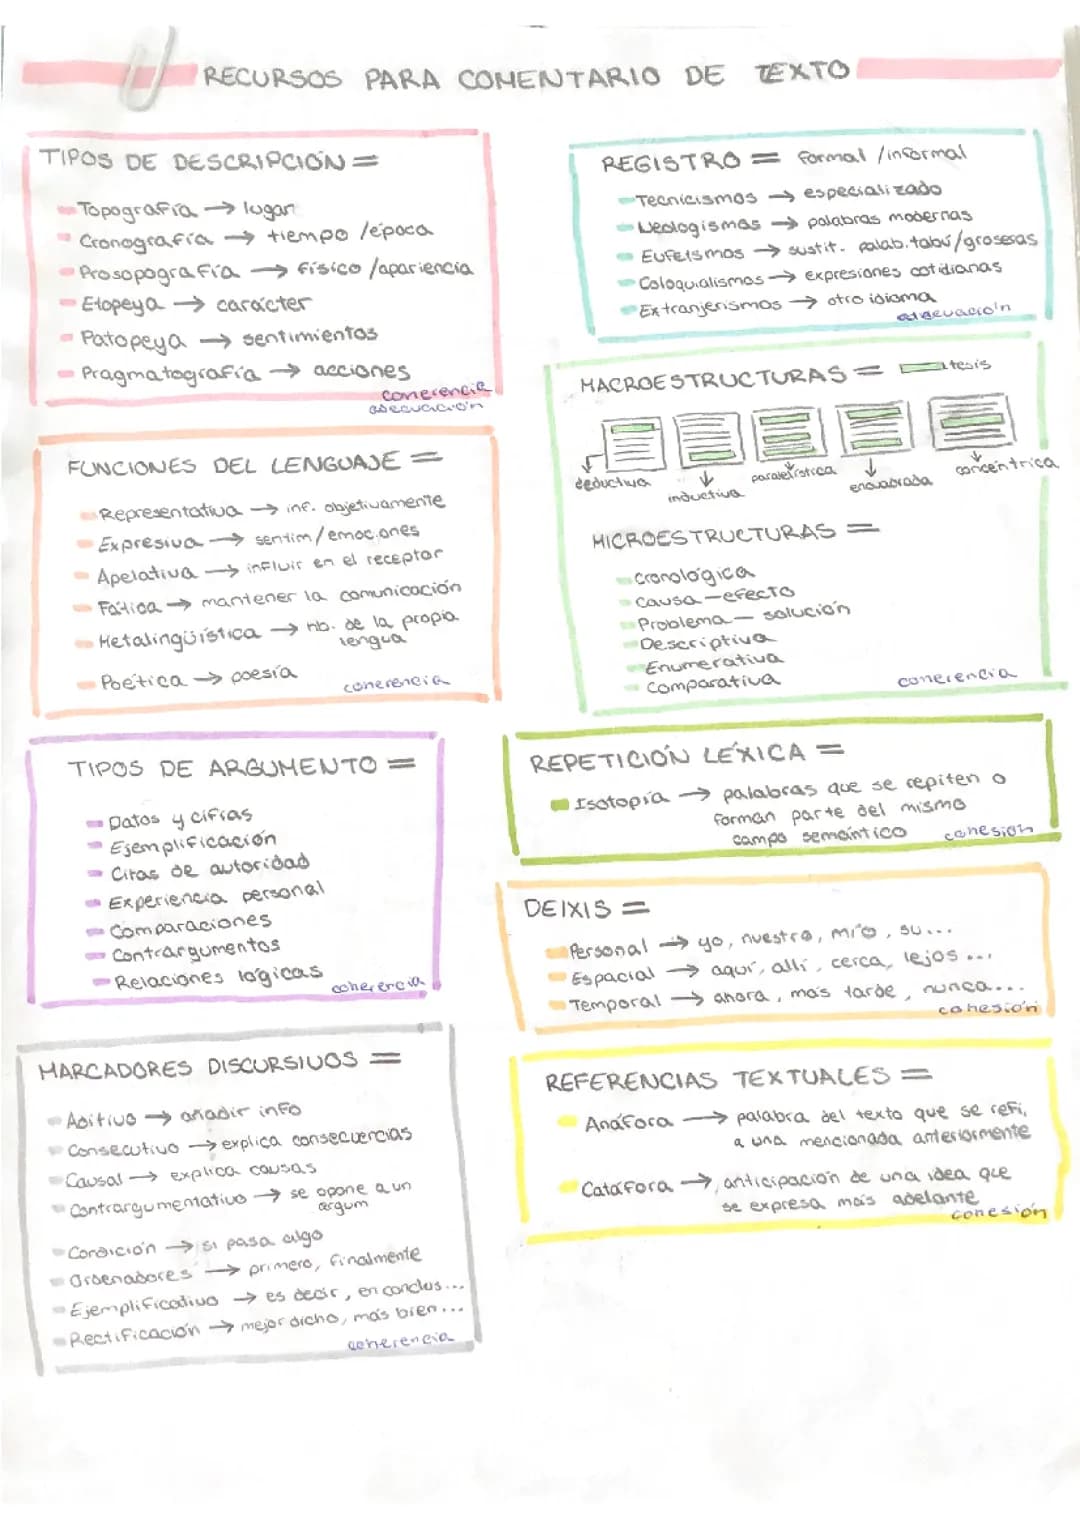 RECURSOS PARA COMENTARIO DE TEXTO
TIPOS DE DESCRIPCIÓN =
Topografía → lugar
Cronografía → tiempo /época
Prosopografía → físico /apariencia
Etopeya → carácter
Patopeya → sentimientos
Pragmatografía → acciones
coherencia
adecuación
FUNCIONES DEL LENGUAJE =
Representativa → inf. objetivamente
Expresiva → sentim/emociones
Apelativa → influir en el receptor
Fática → mantener la comunicación
Metalingüística → hb. de la propia
lengua
Poética → poesía
coherencia
TIPOS DE ARGUMENTO =
Datos y cifras
Ejemplificación
Citas de autoridad
Experiencia personal
Comparaciones
Contrargumentos
Relaciones lógicas
coherencia
MARCADORES DISCURSIVOS =
Aditivo → añadir info
Consecutivo → explica consecuencias
Causal → explica causas
Contrargumentativo → se opone a un
argum
Condición → si pasa algo
Ordenadores → primero, finalmente
Ejemplificativo → es decir, en conclus...
Rectificación → mejor dicho, más bien...
coherencia
REGISTRO = Formal /informal
Tecnicismos → especializado
Neologismos → palabras modernas
Eufeismos → sustit. palab. tabú/groseras
Coloquialismos → expresiones cotidianas
Extranjerismos → otro idioma
adecuación
MACROESTRUCTURAS = tesis
deductiva
inductiva
paralelística
encuadrada
concéntrica
MICROESTRUCTURAS =
Cronológica
Causa - efecto
Problema - solución
Descriptiva
Enumerativa
Comparativa
coherencia
REPETICIÓN LÉXICA =
Isotopía → palabras que se repiten o
forman parte del mismo
campo semántico
cohesión
DEIXIS =
Personal → yo, nuestro, mío, su...
Espacial → aquí, allí, cerca, lejos...
Temporal → ahora, más tarde, nunca...
cohesión
REFERENCIAS TEXTUALES =
Anáfora → palabra del texto que se refi,
a una mencionada anteriormente
Catáfora → anticipación de una idea que
se expresa más adelante
cohesión